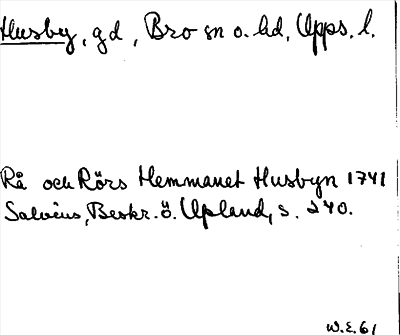 Husby, gd, Bro sn o. hd, Upps. l.
Rå och Rörs Hemmanet Husbyn 1741
Salvius, Beskr. ö. Upland, s. 240.
W.E. 61